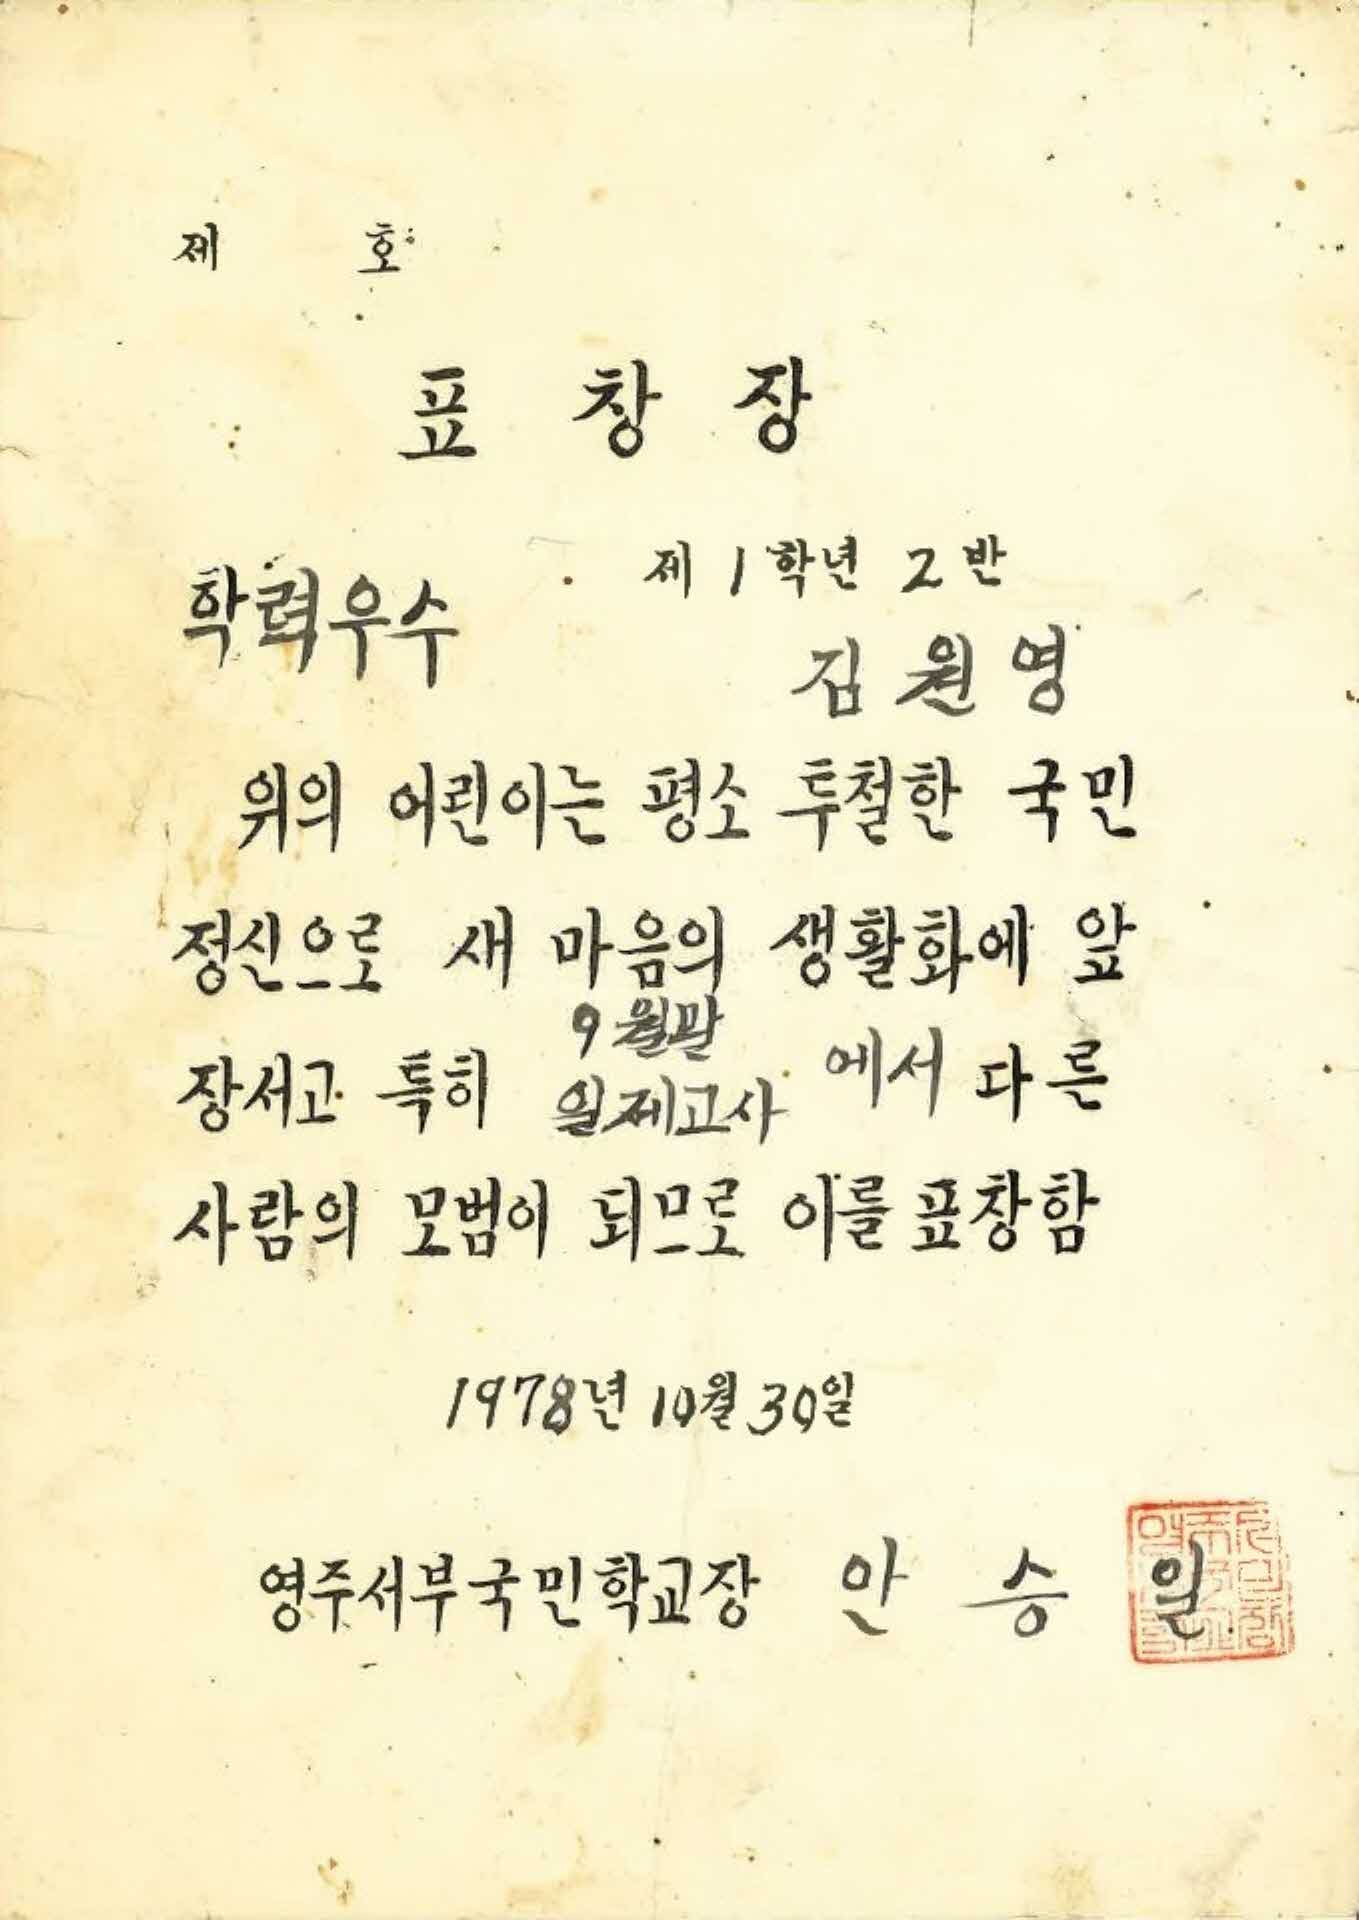 제 호
표 창 장
제 1 학년 2 반
학력우수
김 원 영
위의 어린이는 평소 투철한 국민
정신으로 새 마음의 생활화에 앞
장서고 특히 9월말 일제고사 에서 다른
사람의 모범이 되므로 이를 표창함
1978년 10월 30일
영주서부국민학교장 안 승 일